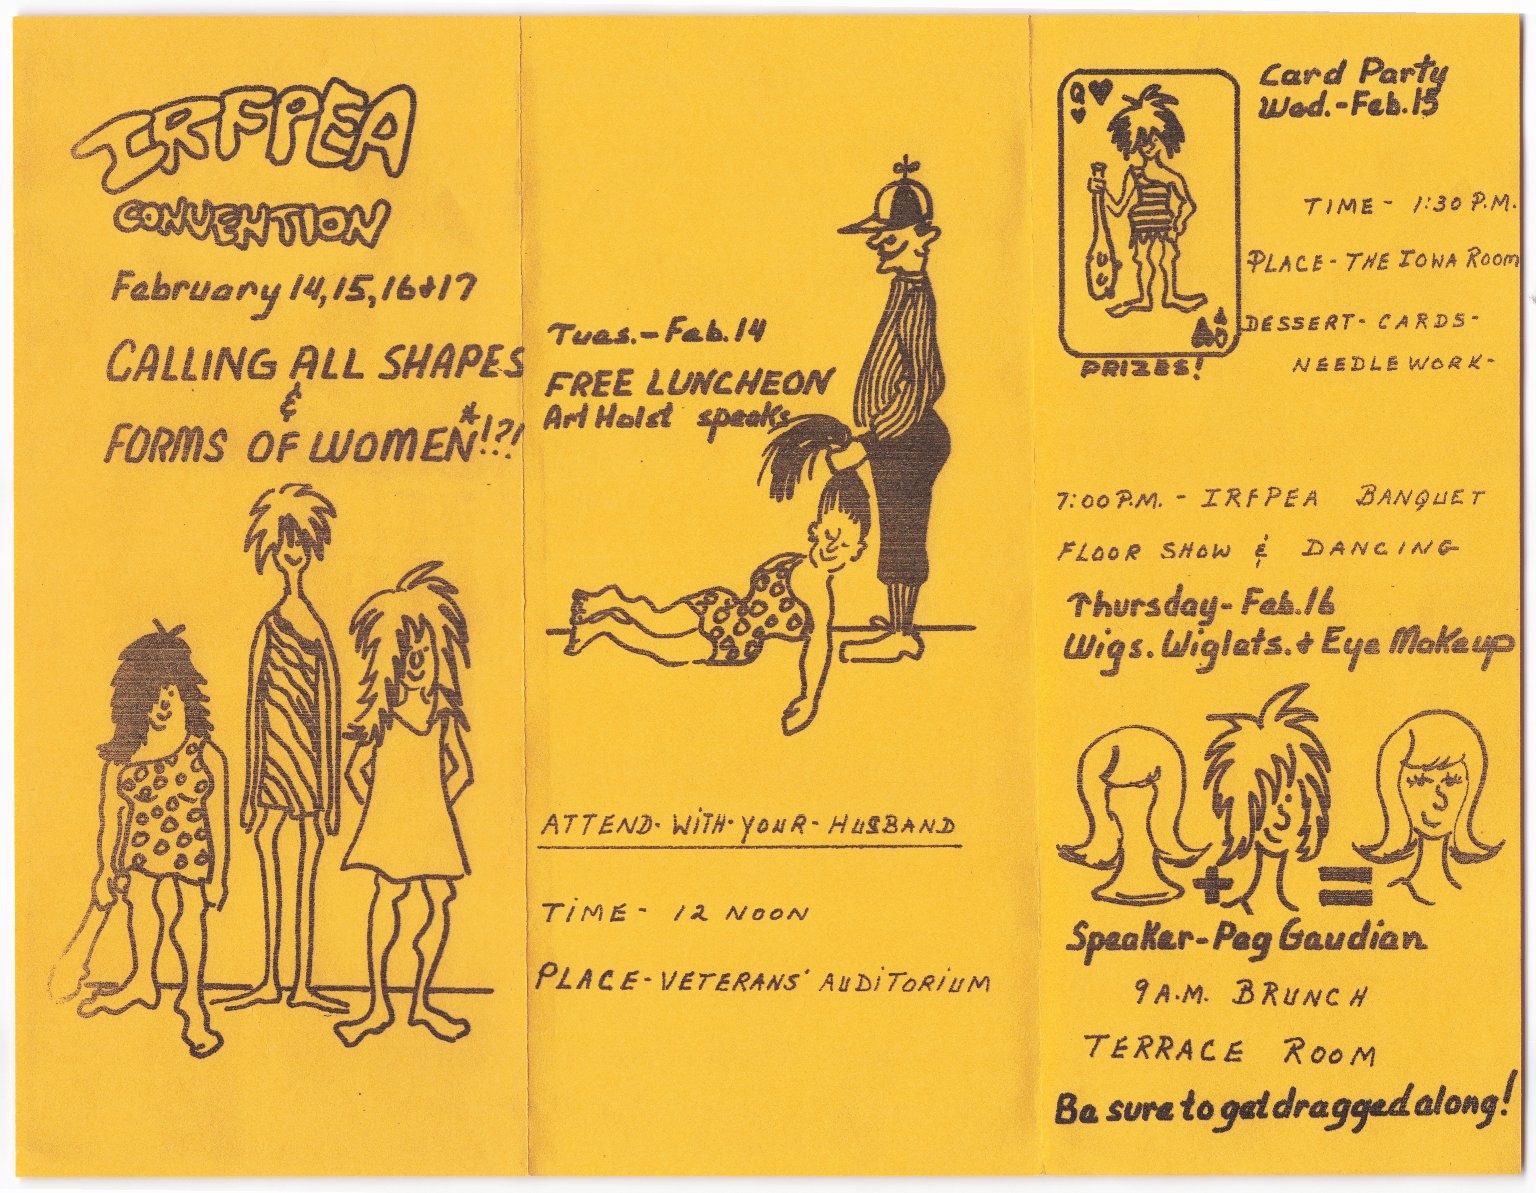 IRFPEA
CONVENTION
February 14, 15, 16 & 17
CALLING ALL SHAPES
&
FORMS OF WOMEN*!?!
Tues. - Feb. 14
FREE LUNCHEON
Art Holst speaks
ATTEND - WITH - YOUR - HUSBAND
TIME - 12 NOON
PLACE - VETERANS' AUDITORIUM
Q
Q
PRIZES!
Card Party
Wed. - Feb. 15
TIME - 1:30 P.M.
PLACE - THE IOWA ROOM
DESSERT - CARDS -
NEEDLEWORK -
7:00 P.M. - IRFPEA BANQUET
FLOOR SHOW & DANCING
Thursday - Feb. 16
Wigs. Wiglets. + Eye Makeup
+ =
Speaker - Peg Gaudian
9 A.M. BRUNCH
TERRACE ROOM
Be sure to get dragged along!